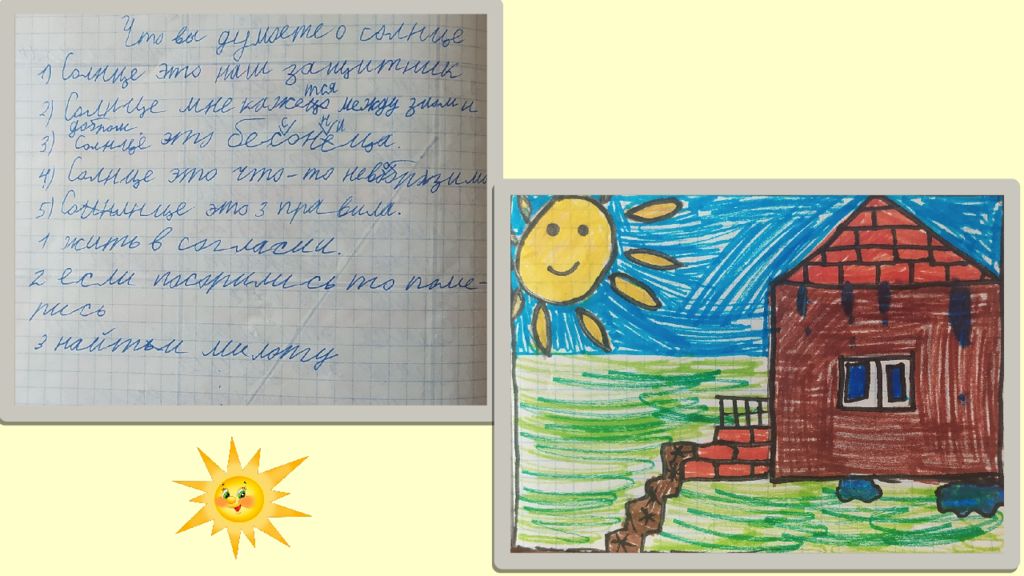 Что вы думаете о солнце
1) Солнце это наш защитник
тся
2) Солнце мне кажецо между злом и
добром.
3) Солнце это
4) Солнце это что-то
5) это 3 правила.
1 жить в согласии.
2 если посорились то поме-
рись
3 милоту